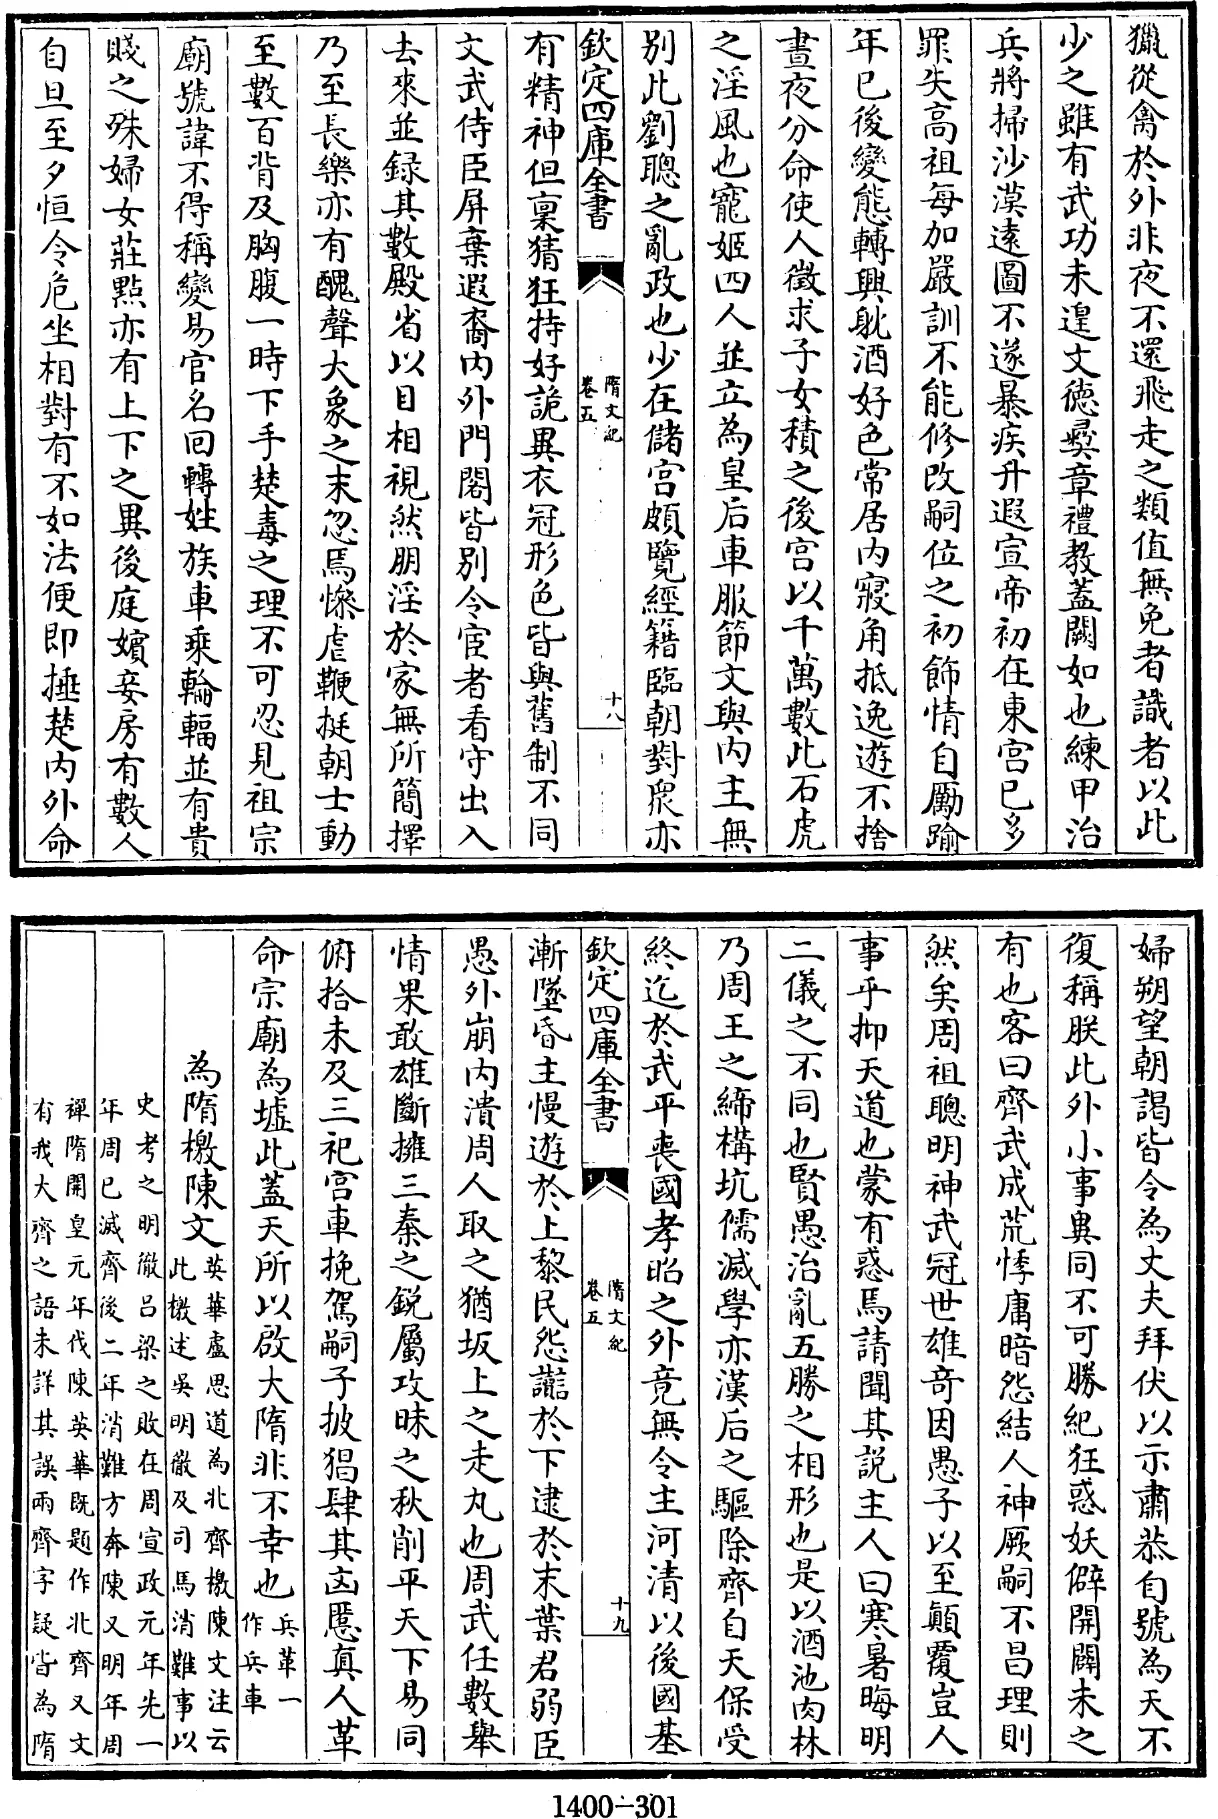 獵從禽於外非夜不還飛走之類值無免者識者以此
少之雖有武功未遑文德彛章禮教蓋闕如也練甲治
兵將掃沙漠遠圖不遂暴疾升遐宣帝初在東宮已多
罪失高祖每加嚴訓不能修改嗣位之初飾情自勵踰
年已後變態轉興躭酒好色常居内寢角抵逸遊不捨
晝夜分命使人徵求子女積之後宮以千萬數此石虎
之淫風也寵姬四人並立為皇后車服節文與内主無
別此劉聰之亂政也少在儲宮頗覽經籍臨朝對衆亦
欽定四庫全書
隋文紀
卷五
十八
有精神但稟猜狂持好詭異衣冠形色皆與舊制不同
文武侍臣屏棄遐裔内外門閤皆別令宦者看守出入
去來並録其數殿省以目相視然朋淫於家無所簡擇
乃至長樂亦有醜聲大象之末忽焉慘虐鞭挺朝士動
至數百背及胸腹一時下手楚毒之理不可忍見祖宗
廟號諱不得稱變易官名回轉姓族車乗輪輻並有貴
賤之殊婦女莊點亦有上下之異後庭嬪妾房有數人
自旦至夕恒令危坐相對有不如法便即捶楚内外命
婦朔望朝謁皆令為丈夫拜伏以示肅恭自號為天不
復稱朕此外小事異同不可勝紀狂惑妖僻開闢未之
有也客曰齊武成荒悖庸暗怨結人神厥嗣不昌理則
然矣周祖聰明神武冠世雄奇因愚子以至顛覆豈人
事乎抑天道也蒙有惑焉請聞其説主人曰寒暑晦明
二儀之不同也賢愚治亂五勝之相形也是以酒池肉林
乃周王之締構坑儒滅學亦漢后之驅除齊自天保受
終迄於武平喪國孝昭之外竟無令主河清以後國基
欽定四庫全書
隋文紀
卷五
十九
漸墜昏主慢遊於上黎民怨讟於下逮於末葉君弱臣
愚外崩内潰周人取之猶坂上之走丸也周武任數舉
情果敢雄斷擁三秦之鋭屬攻昧之秋削平天下易同
俯拾未及三祀宮車挽駕嗣子披猖肆其凶慝真人革
命宗廟為墟此蓋天所以啟大隋非不幸也兵革一
作兵車
為隋檄陳文英華盧思道為北齊檄陳文注云
此檄述吳明徹及司馬消難事以
史考之明徹呂梁之敗在周宣政元年先一
年周已滅齊後二年消難方奔陳又明年周
禪隋開皇元年伐陳英華既題作北齊又文
有我大齊之語未詳其誤兩齊字疑皆為隋
1400-301